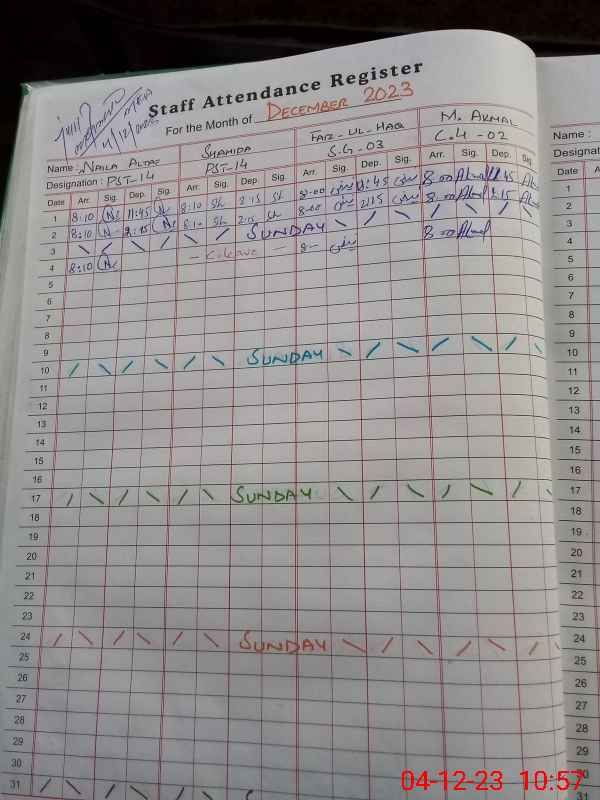 Staff Attendance Register
For the Month of DECEMBER 2023
4/12/2023
Name : NAILA ALTAF SHAHIDA FAIZ-UL-HAQ M. AKMAL
Designation : PST-14 PST-14 S.G-03 C.4-02
Date Arr. Sig. Dep. Sig. Arr. Sig. Dep. Sig. Arr. Sig. Dep. Sig. Arr. Sig. Dep. Sig.
1 8:10 11:45 8:10 Sh 2:15 Sh 8:00 11:45 8:00 Akmal
2 8:10 2:15 8:10 Sh 2:15 Sh 8:00 2:15 8:00 Akmal 2:15
3 SUNDAY
4 8:10 8:00 Akmal
5
6
7
8
9
10 SUNDAY
11
12
13
14
15
16
17 SUNDAY
18
19
20
21
22
23
24 SUNDAY
25
26
27
28
29
30
31
Name :
Designat
Date A
1
2
3
4
5
6
7
8
9
10
11
12
13
14
15
16
17
18
19
20
21
22
23
24
25
26
27
28
29
30
31
04-12-23 10:57